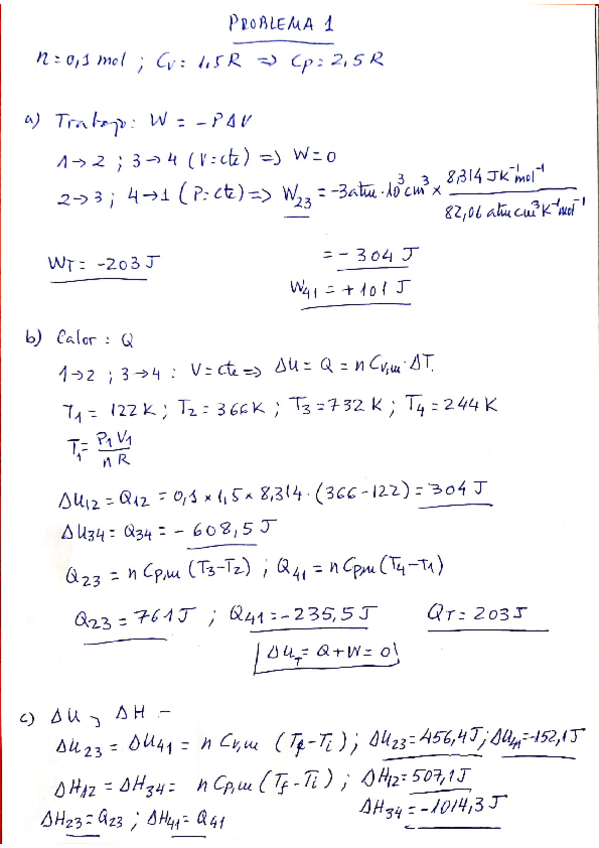 PROBLEMA 1
n=0,1 mol ; Cv= 1,5R => Cp=2,5R
a) Trabajo: W = -PΔV
1→2 ; 3→4 (V=cte) => W=0
2→3 ; 4→1 (P=cte) => W23 = -3atm·10³cm³ × 8,314 JK⁻¹mol⁻¹ / 82,06 atm cm³K⁻¹mol⁻¹
= -304 J
WT = -203 J
W41 = +101 J
b) Calor: Q
1→2 ; 3→4 : V=cte => ΔU = Q = nCv,m·ΔT.
T1 = 122K ; T2=366K ; T3=732K ; T4=244K
T1= P1V1 / nR
ΔU12 = Q12 = 0,1 × 1,5 × 8,314·(366-122) = 304 J
ΔU34 = Q34 = -608,5 J
Q23 = nCp,m(T3-T2) ; Q41 = nCpm(T4-T1)
Q23 = 761J ; Q41 = -235,5J QT = 203J
ΔUT = Q+W=0
c) ΔU y ΔH -
ΔU23 = ΔU41 = nCv,m (Tf-Ti) ; ΔU23=456,4J ; ΔU41=-152,1J
ΔH12 = ΔH34 = nCp,m (Tf-Ti) ; ΔH12=507,1J
ΔH34 = -1014,3J
ΔH23 = Q23 ; ΔH41 = Q41